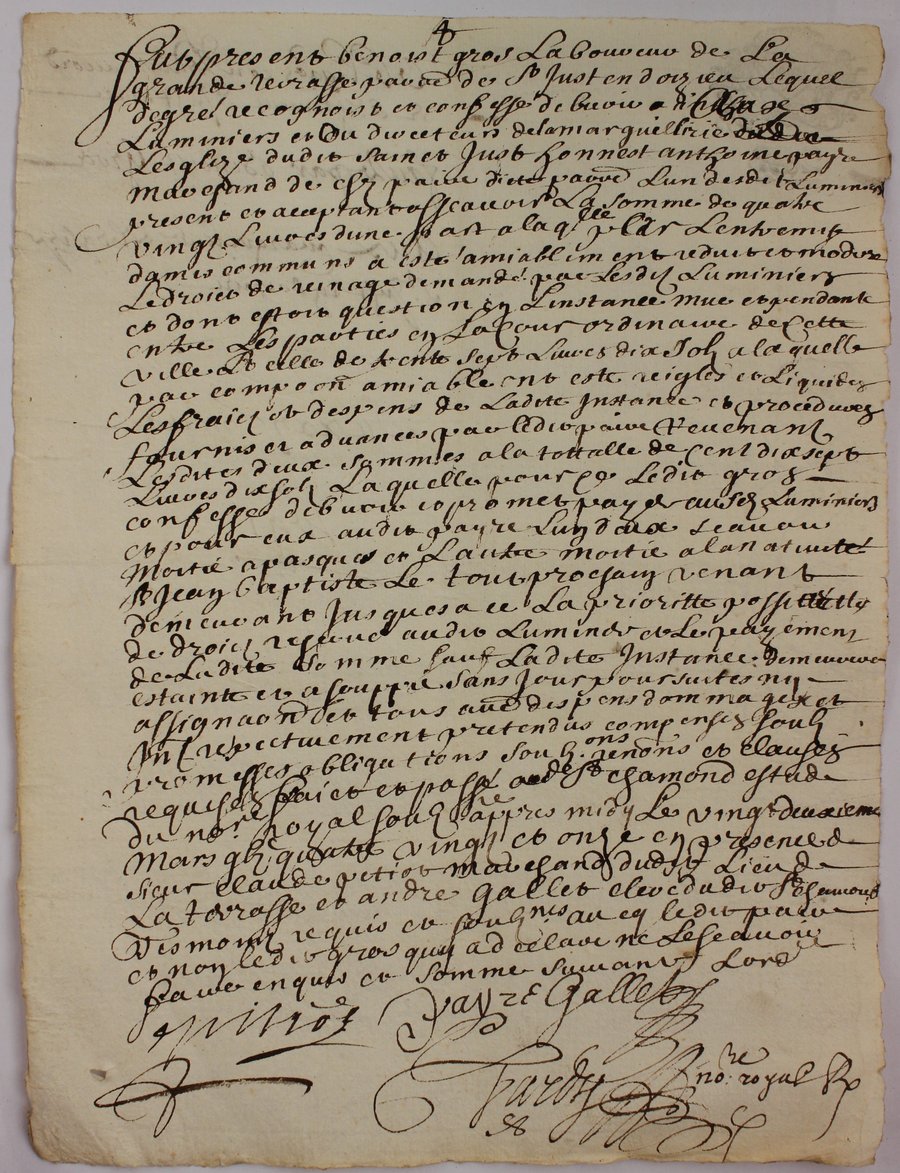 4
Fut present benoist gros Laboureur de La
grande terrasse paroe de St Just en doizieu Lequel
de gré recognoist et confesse debvoir a
Luminiers et du directeurs de la marguillirie
Lesglize dudit Sainct Just honnest anthoine payre
marchand de Lun desdits Luminiers
present et aceptant asscavoir La somme de quatre
vingt Livres dune part a laqlle par Lentremit
damis communs a esté amiablement reduit et moderé
Le droict de reinage demandé par Lesdits Luminiers
et dont estoit question en Linstance mue et pendante
entre Les parties en La Cour ordinaire de Cette
ville Et celle de trente sept Livres dix Solz a laquelle
par compoon amiable ont esté reiglés et Liquides
Les fraicz et despens de Ladite Instance et procedures
fournis et advancés par ledit paire Revenant
Lesdites deux sommes a la tottalle de Cent dix sept
Livres dix solz Laquelle pour ce Ledit gros
confesse debvoir et promet payer ausd Luminiers
et pour eux audit payre Lun deux scavoir
moitié a pasques et Lautre moitié a la nativité
St Jean baptiste Le tout prochain venant
demeurant Jusques a ce La prioritte
de droict reservé audit Luminier et Le payement
de Ladite somme sauf Ladite Instance demeurera
estainte et assouppie sans Jour poursuites ny
assignaon Et tous despens dommages et
Int respectivement pretendus compensez soub
promesses obligations soubzons renons et clauses
requises faict et passé aud St chamond estude
du nore royal soubzne appres midy Le vingt deuxieme
Mars gbi quatre vingt et onze en presence de
sieur claude petiot marchand dudit Lieu de
La terrasse et andre Gallet clerc dudit St chamond
tesmoins requis et soubznes avecq ledit paire
et non ledit gros quy a declaré ne Le scavoir
faire enquis et sommé suivant Lord
petiot
payre Gallet
hardy nore royal